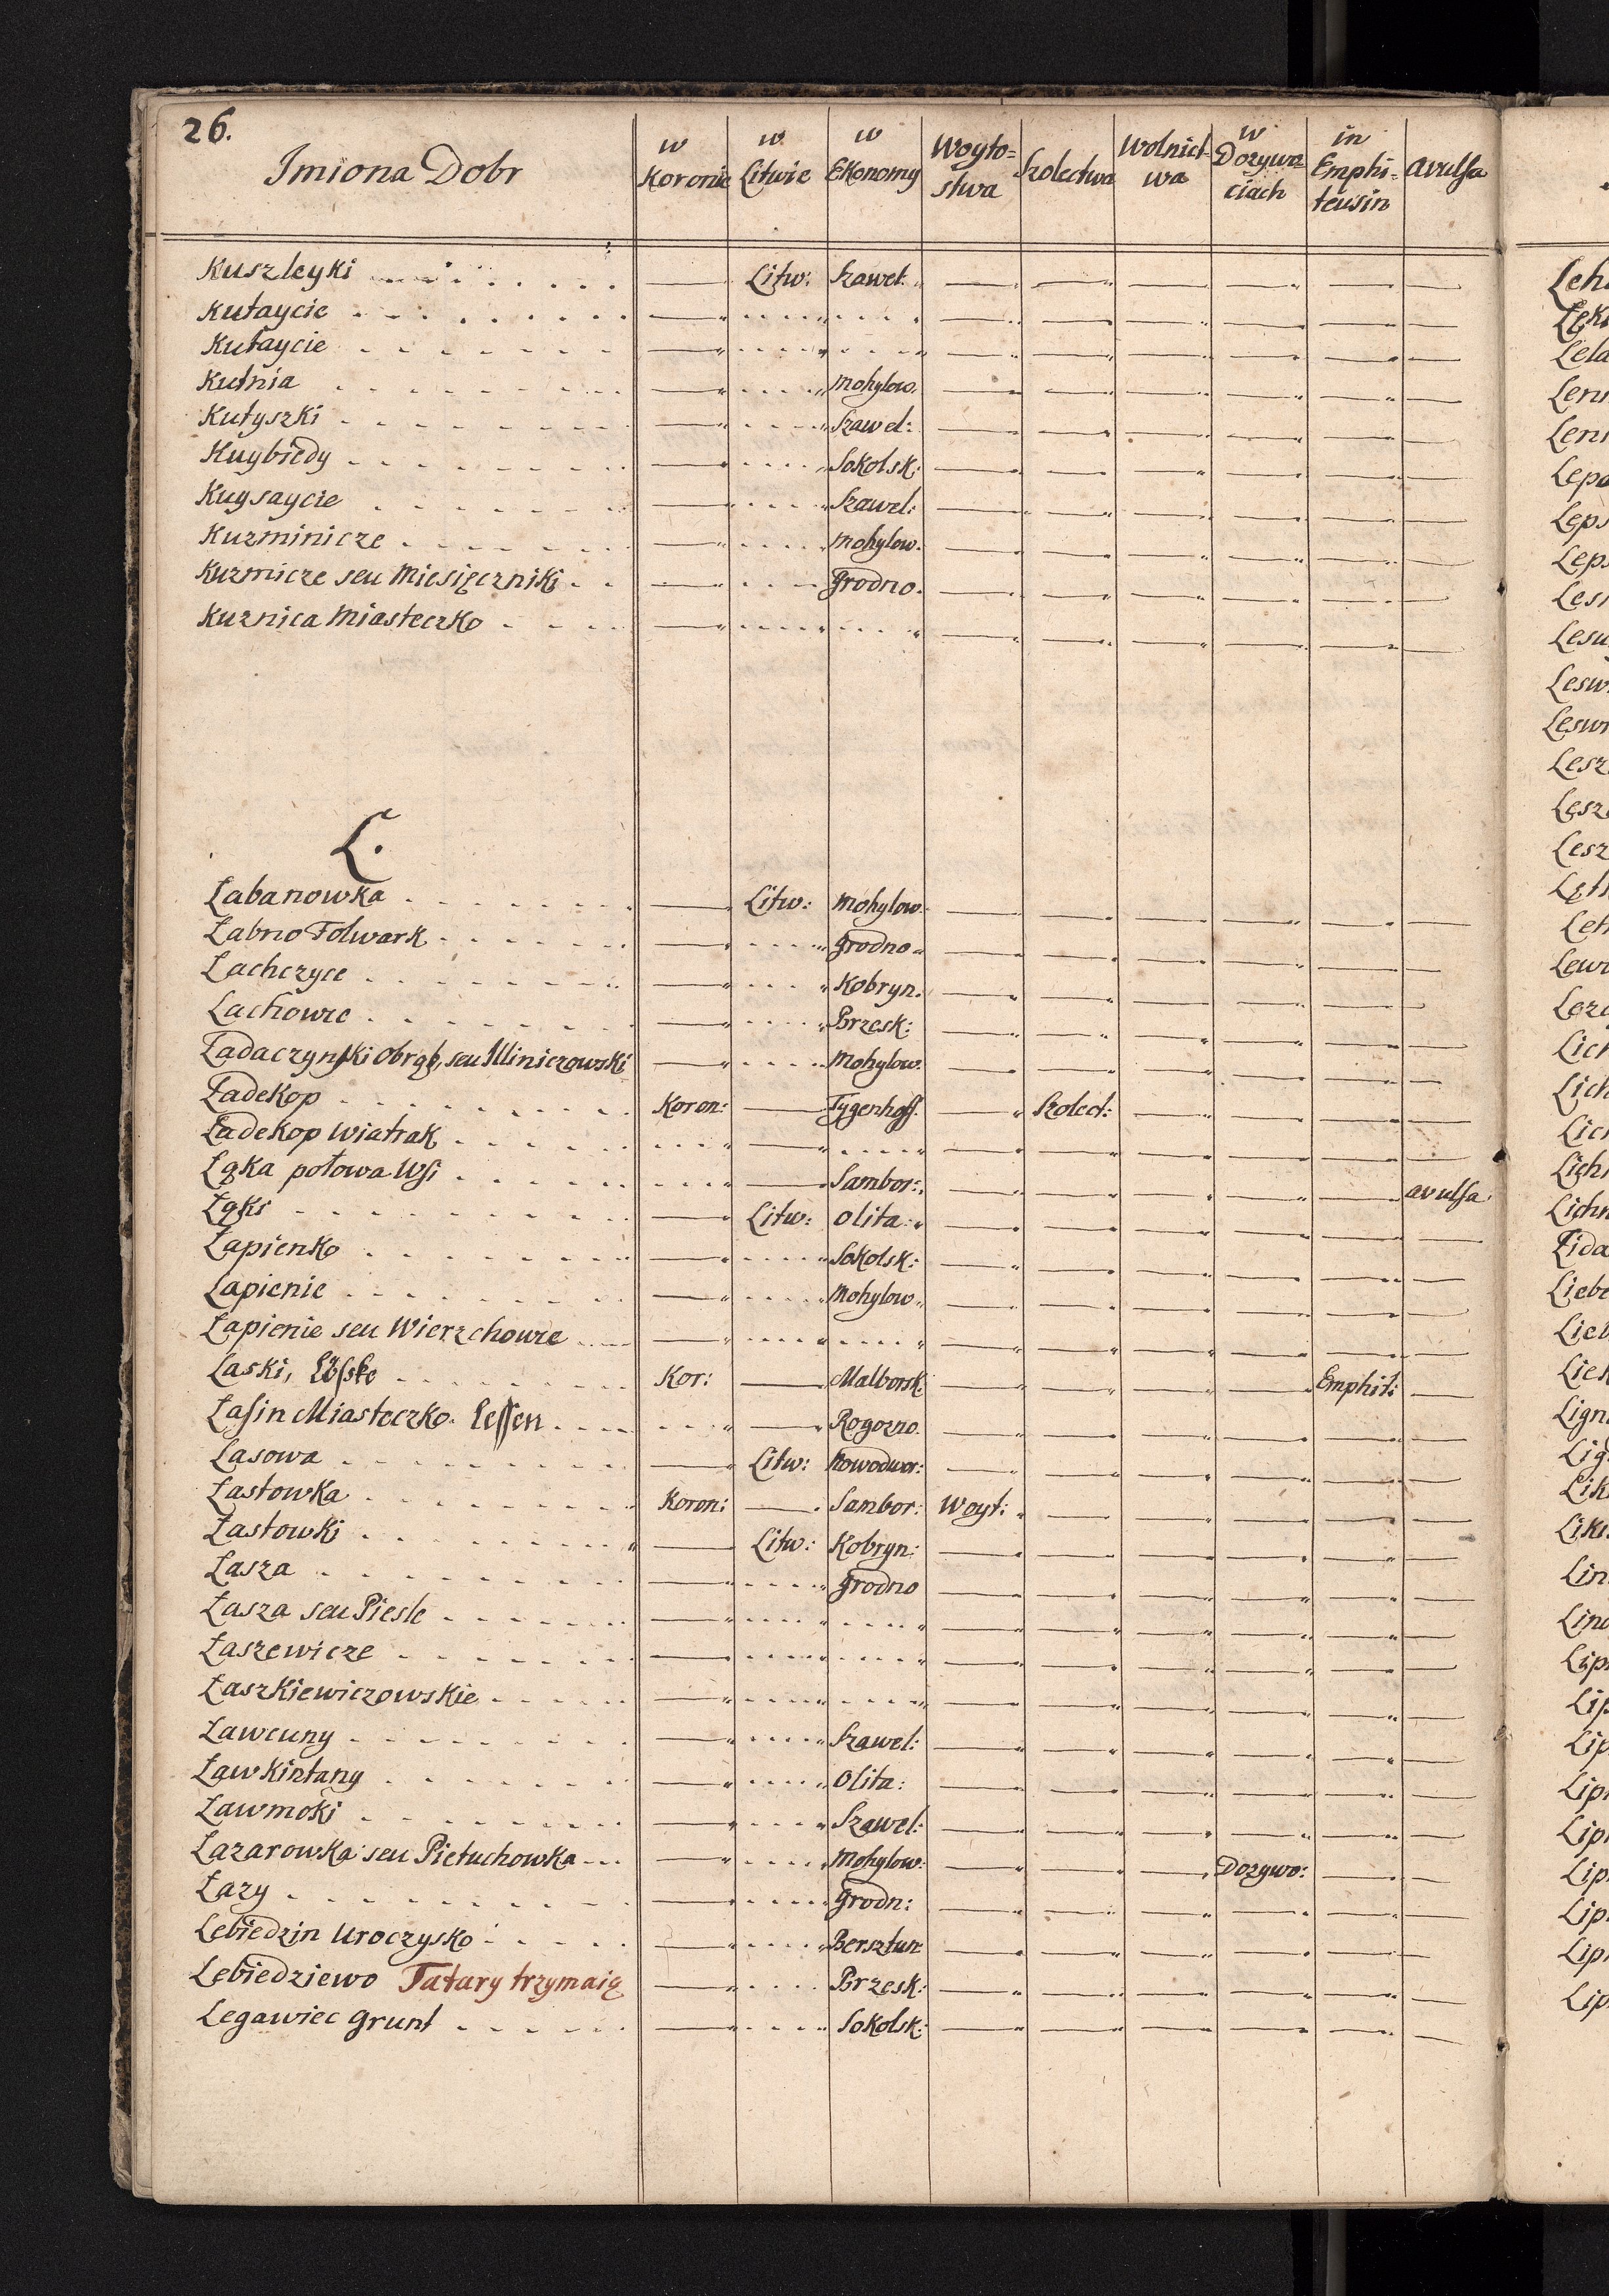 26.
Imiona Dobr w Koronie w Litwie w Ekonomy Woyto=stwa Szolectwa Wolnict-wa w Dozywo=ciach in Emphi=teusin avulsa
Kuszleyki Litw: Szawel:
Kutaycie
Kutaycie
Kutnia Mohylow.
Kutyszki Szawel:
Kuybiedy Sokolsk:
Kuysaycie Szawel:
Kuzminicze Mohylow.
Kuzmicze seu Miesięczniki Grodno.
Kuznica Miasteczko
L.
Łabanowka Litw: Mohylow.
Łabno Folwark Grodno
Łachczyce Kobryn.
Lachowce Brzesk:
Ładaczynski Obrąb, seu Illiniczowski Mohylow.
Ładekop Koron: Tygenhoff. Szolect:
Ładekop Wiatrak
Łąka połowa Wsi Sambor: avulsa
Łąki Litw: Olita:
Łapienko Sokolsk:
Łapienie Mohylow.
Łapienie seu Wierzchowce
Laski, Kor: Malborsk: Emphit:
Łasin Miasteczko. Lessen Rogozno.
Lasowa Litw: Nowodwor:
Łastowka Koron: Sambor: Woyt:
Łastowki Litw: Kobryn:
Łasza Grodno
Łasza seu Piesle
Łaszewicze
Łaszkiewiczowskie
Ławcuny Szawel:
Ławkintany Olita:
Ławmoki Szawel:
Łazarowka seu Pietuchowka Mohylow: Dozywo:
Łazy Grodn:
Lebiedzin Uroczysko Bersztun:
Lebiedziewo Tatary trzymaią Brzesk:
Legawiec Grunt Sokolsk: